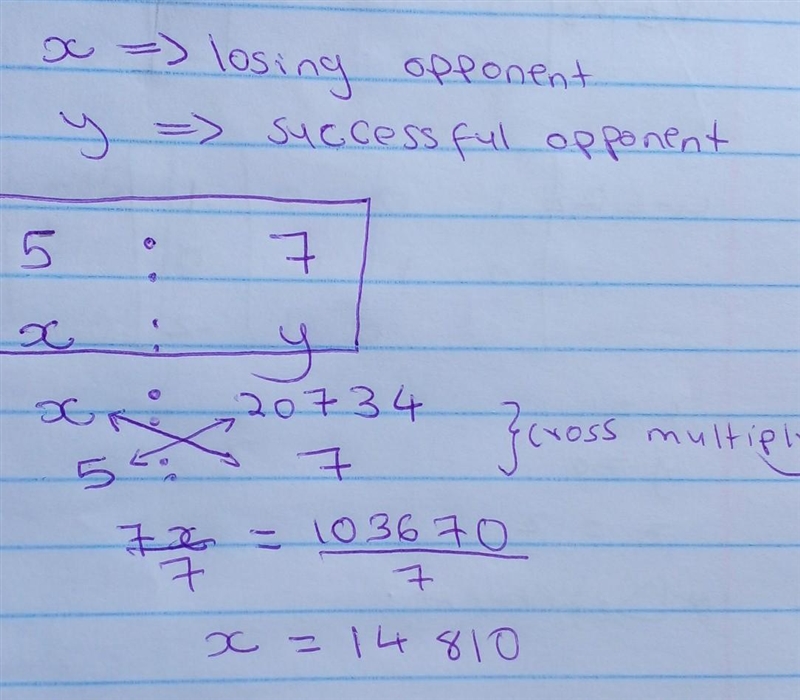 x => losing opponent
y => successful opponent
5 : 7
x : y
x : 20734
5 : 7 } cross multiply
7x = 103670
7 7
x = 14 810